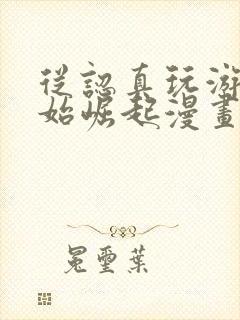 從認真玩游
始崛起漫畫
冕璽葉